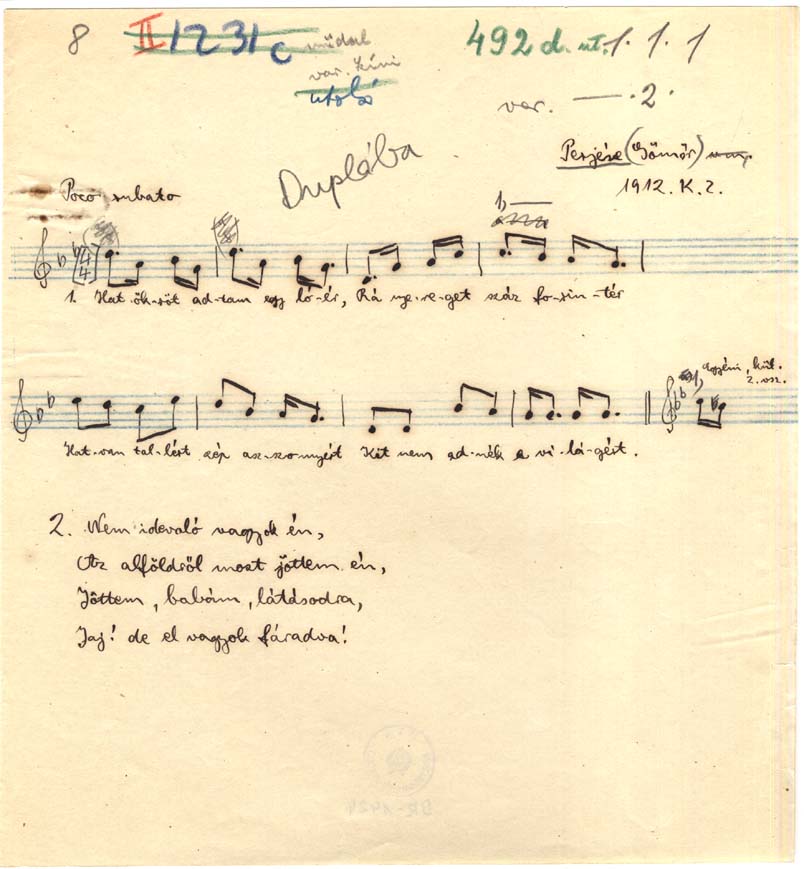 8 II 1231c műdal 492 d. ut. 1. 1. 1
var. kívi
utolsó var. — . 2 .
Perjése (Gömör)
Dupléba 1912. K. Z.
Poco rubato
4/4
1. Hat ök-röt ad-tam egy ló-ér, Rá nye-re-get száz fo-rin-tér
2. vsz.
Hat-van tal-lért szép asz-szonyért Két nem ad-nék e vi-lá-gért.
2. Nem idevaló vagyok én,
Az alföldről most jöttem én,
Jöttem, babám, látásodra,
Jaj! de el vagyok fáradva!